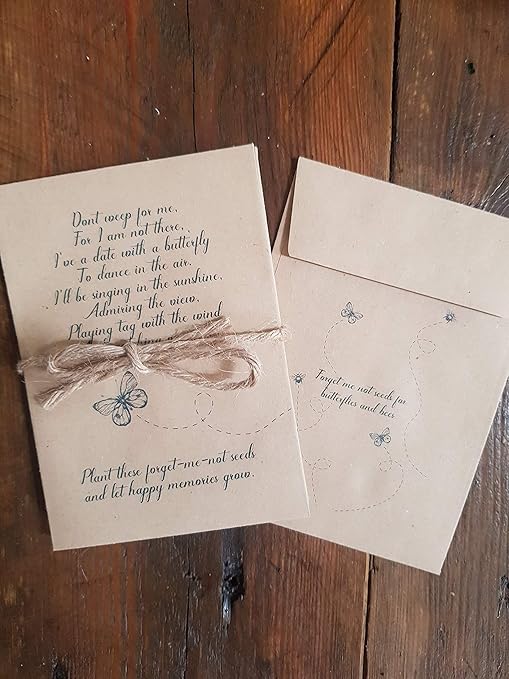 Dont weep for me,
For I am not there,
I've a date with a butterfly
To dance in the air.
I'll be singing in the sunshine,
Admiring the view,
Playing tag with the wind
Plant these forget-me-not seeds
and let happy memories grow.
Forget me not seeds for
butterflies and bees